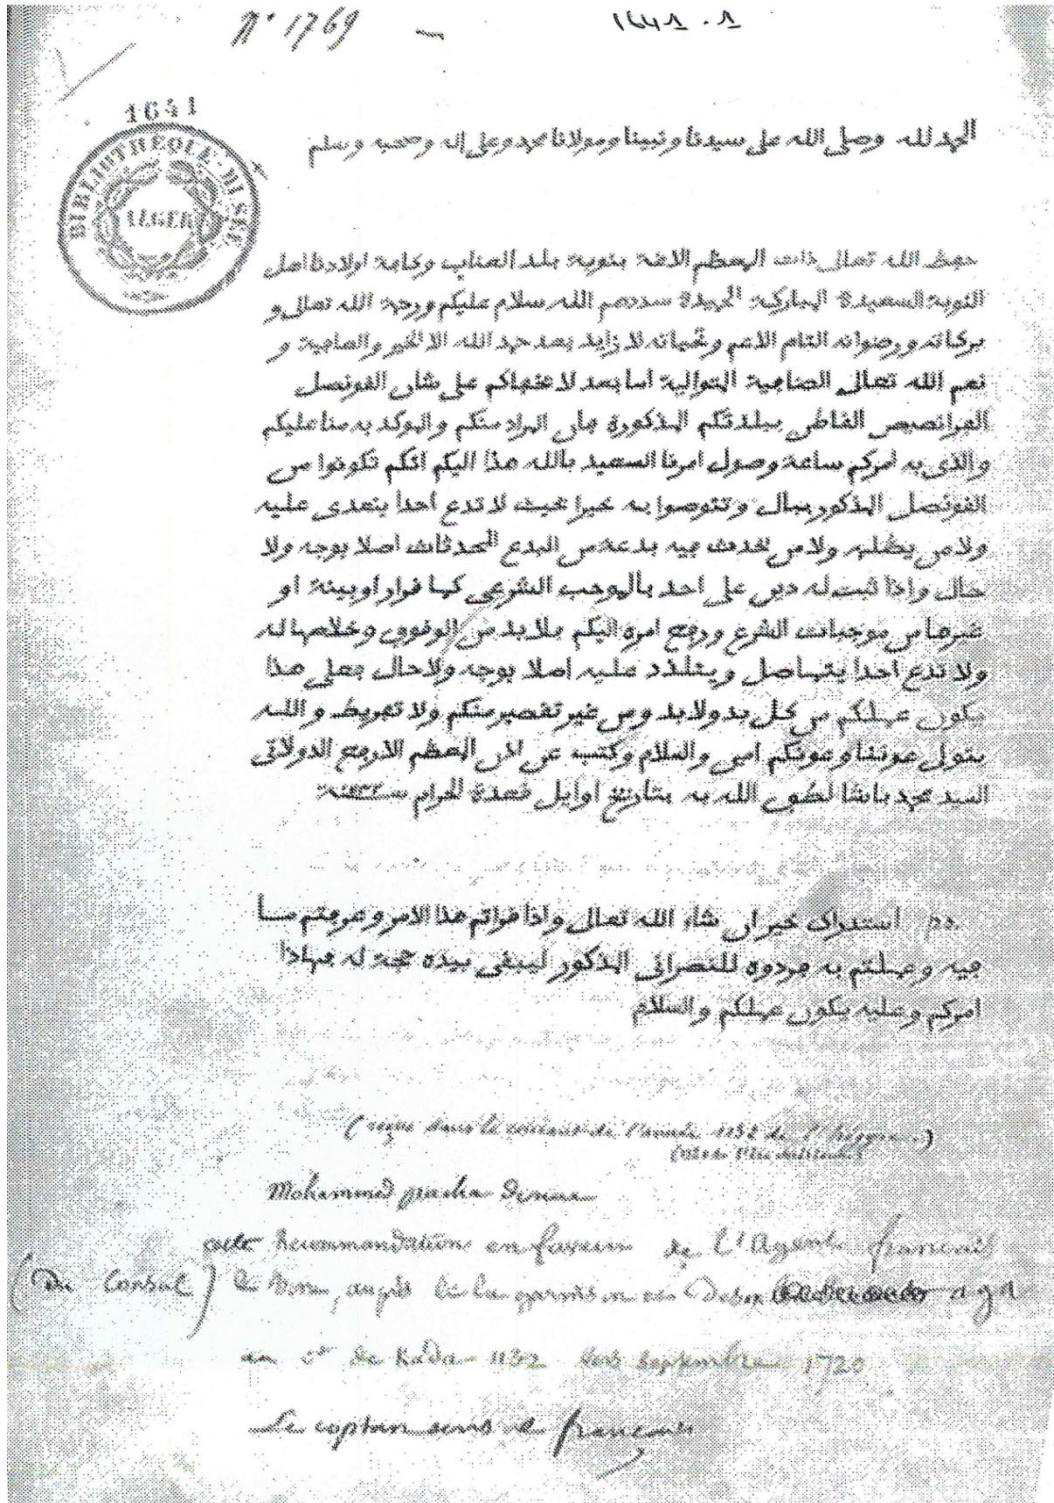 N° 1769 — 1641 . 1
1641
BIBLIOTHÈQUE MUSÉE
ALGER
الحمد لله وصلى الله على سيدنا ونبينا ومولانا محمد وعلى اله وصحبه وسلم
حفظ الله تعالى ذات المعظم الاغة بنوبة بلد العناب وكافة اولادنا اهل
النوبة السعيدة المباركة الحميدة سددهم الله سلام عليكم ورحمة الله تعالى و
بركاته ورضوانه التام الاعم وتحياته لا زايد بعد حمد الله الا الخير والعافية و
نعم الله تعالى الضافية المتوالية اما بعد لا عليكم على شان القونصل
الفرانصيص القاطن ببلدتكم المذكورة فان المراد منكم والموكد به منا عليكم
والذى به امركم ساعة وصول امرنا السعيد بالله هذا اليكم انكم تكونوا من
القونصل المذكور ببال وتتوصوا به خيرا بحيث لا تدع احدا يتعدى عليه
ولا من يظلمه ولا من تحدث فيه بدعة من البدع المحدثات اصلا بوجه ولا
حال واذا ثبت له دين على احد بالموجب الشرعى كما قرار او بينة او
غيرها من موجبات الشرع ورفع امره اليكم فلا بد من الوقوف وخلاصها له
ولا تدع احدا يتماصل ويتلدد عليه اصلا بوجه ولا حال فعلى هذا
يكون عملكم من كل بد ولا بد ومن غير تقصير منكم ولا تفريط والله
يتولى عوننا وعونكم امين والسلام وكتب عن اذن المعظم الارفع الدولاتى
السيد محمد باشا لطف الله به بتاريخ اوايل قعدة الحرام سنة
استدراك خير ان شاء الله تعالى واذا قراتم هذا الامر وعرفتم مــا
فيه وعملتم به فردوه للنصرانى المذكور ليبقى بيده حجة له فهاذا
امركم وعليه يكون عملكم والسلام
de l'année 1132 de l'hégire.)
Mohammed pacha
Recommandation en faveur de l'Agent français
(Du Consul) de Bone, la garnison aga
de Kada 1132 septembre 1720
français